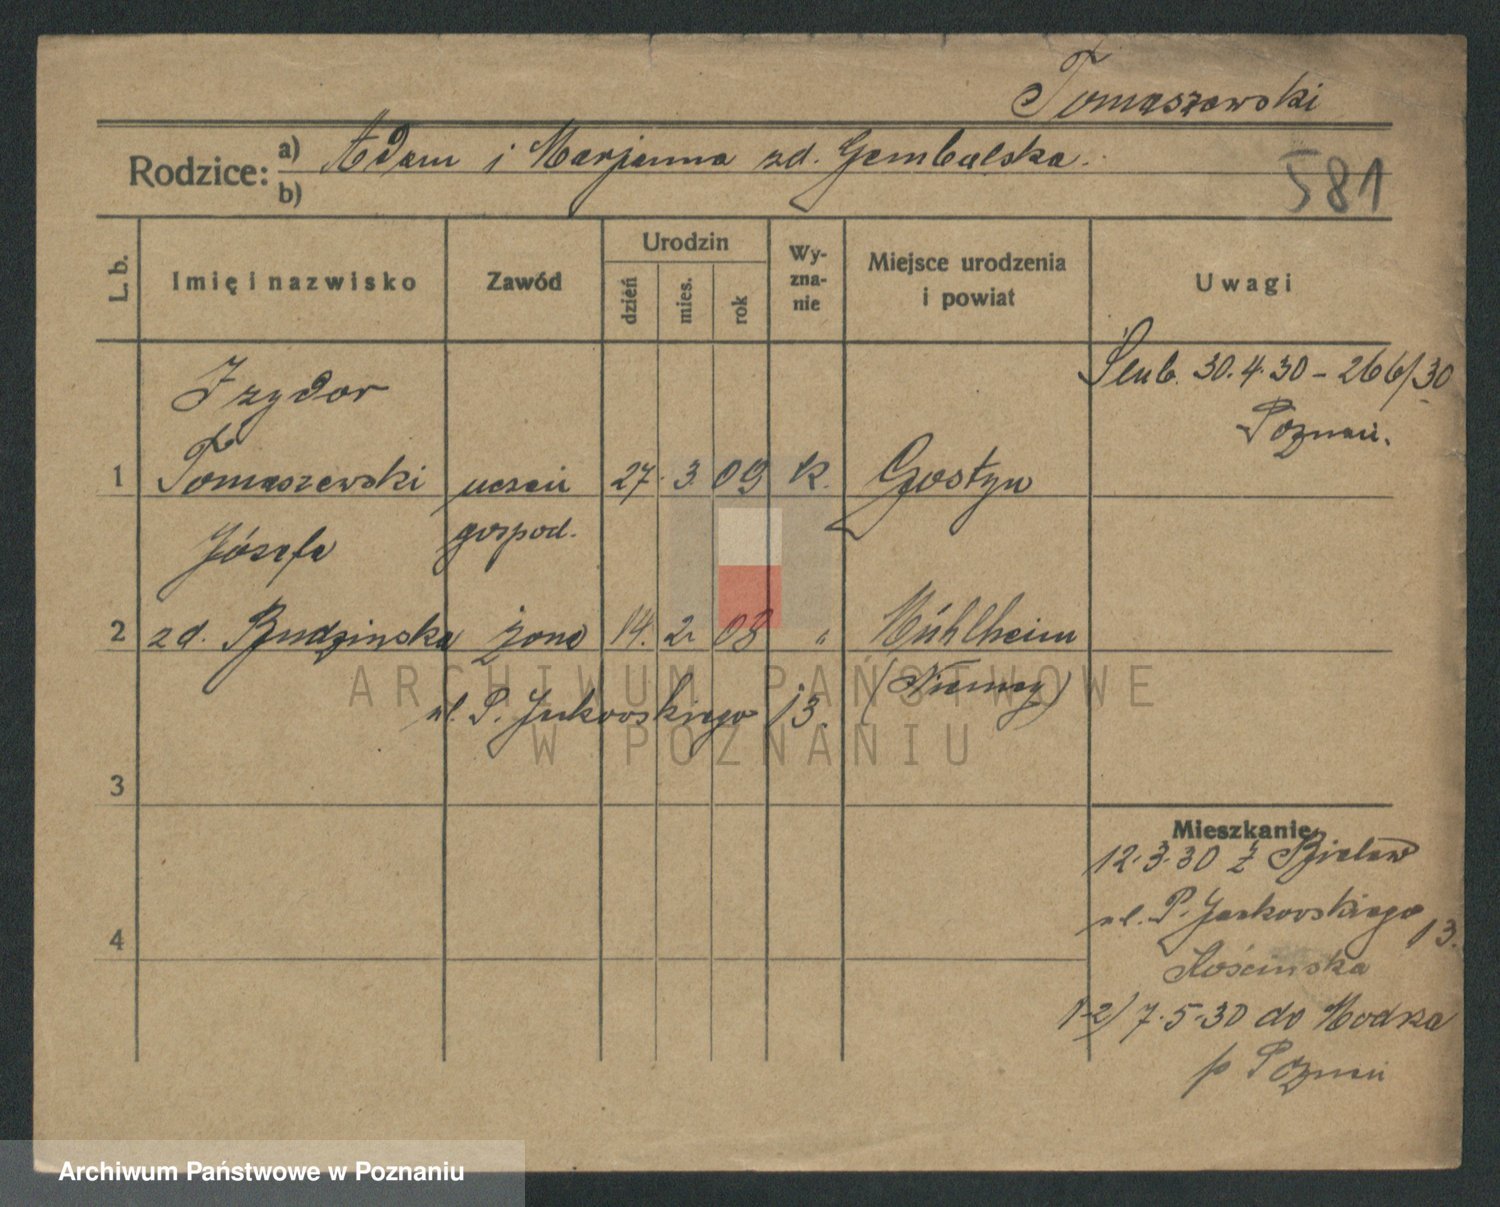 Tomaszewski
Rodzice: a) Adam i Marjanna zd. Gembalska.
b)
581
L. b.
Imię i nazwisko
Zawód
Urodzin
dzień
mies.
rok
Wy-
zna-
nie
Miejsce urodzenia
i powiat
Uwagi
Izydor
Ślub. 30.4.30 - 266/30
Poznań.
1 Tomaszewski uczeń 27. 3. 09 k. Gostyń
gospod.
Józefa
2 zd. Budzinska żona 14. 2. 08 " Mühlheim
(Niemcy)
ul. P. Jackowskiego 13.
3
4
Mieszkanie
12.3.30 z Bielaw
ul. P. Jackowskiego 13.
Kościńska
1-2) 7.5.30 do Modrza
p Poznań
ARCHIWUM PAŃSTWOWE
W POZNANIU
Archiwum Państwowe w Poznaniu